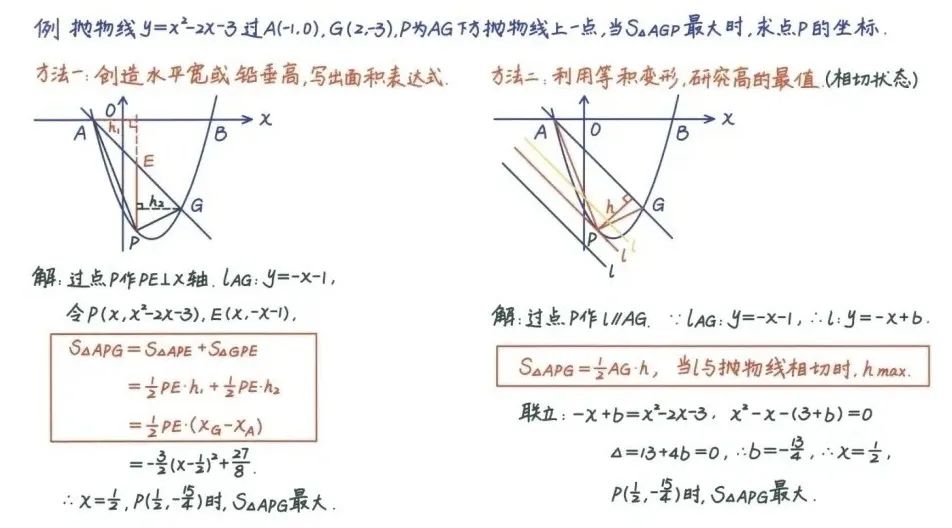 例 抛物线y=x²-2x-3过A(-1,0),G(2,-3),P为AG下方抛物线上一点,当S△AGP最大时,求点P的坐标.
方法一:创造水平宽或铅垂高,写出面积表达式.
O
A
h₁
B
x
E
h₂
G
P
解:过点P作PE⊥X轴. lAG:y=-x-1,
令P(x,x²-2x-3),E(x,-x-1),
S△APG=S△APE+S△GPE
=½PE·h₁+½PE·h₂
=½PE·(xG-xA)
=-3/2(x-½)²+27/8.
∴x=½,P(½,-15/4)时,S△APG最大.
方法二:利用等积变形,研究高的最值.(相切状态)
A
O
B
x
h
G
P
l
l
l
解:过点P作l∥AG. ∵lAG:y=-x-1,∴l:y=-x+b.
S△APG=½AG·h, 当l与抛物线相切时,h max.
联立:-x+b=x²-2x-3, x²-x-(3+b)=0
Δ=13+4b=0,∴b=-13/4,∴x=½,
P(½,-15/4)时,S△APG最大.